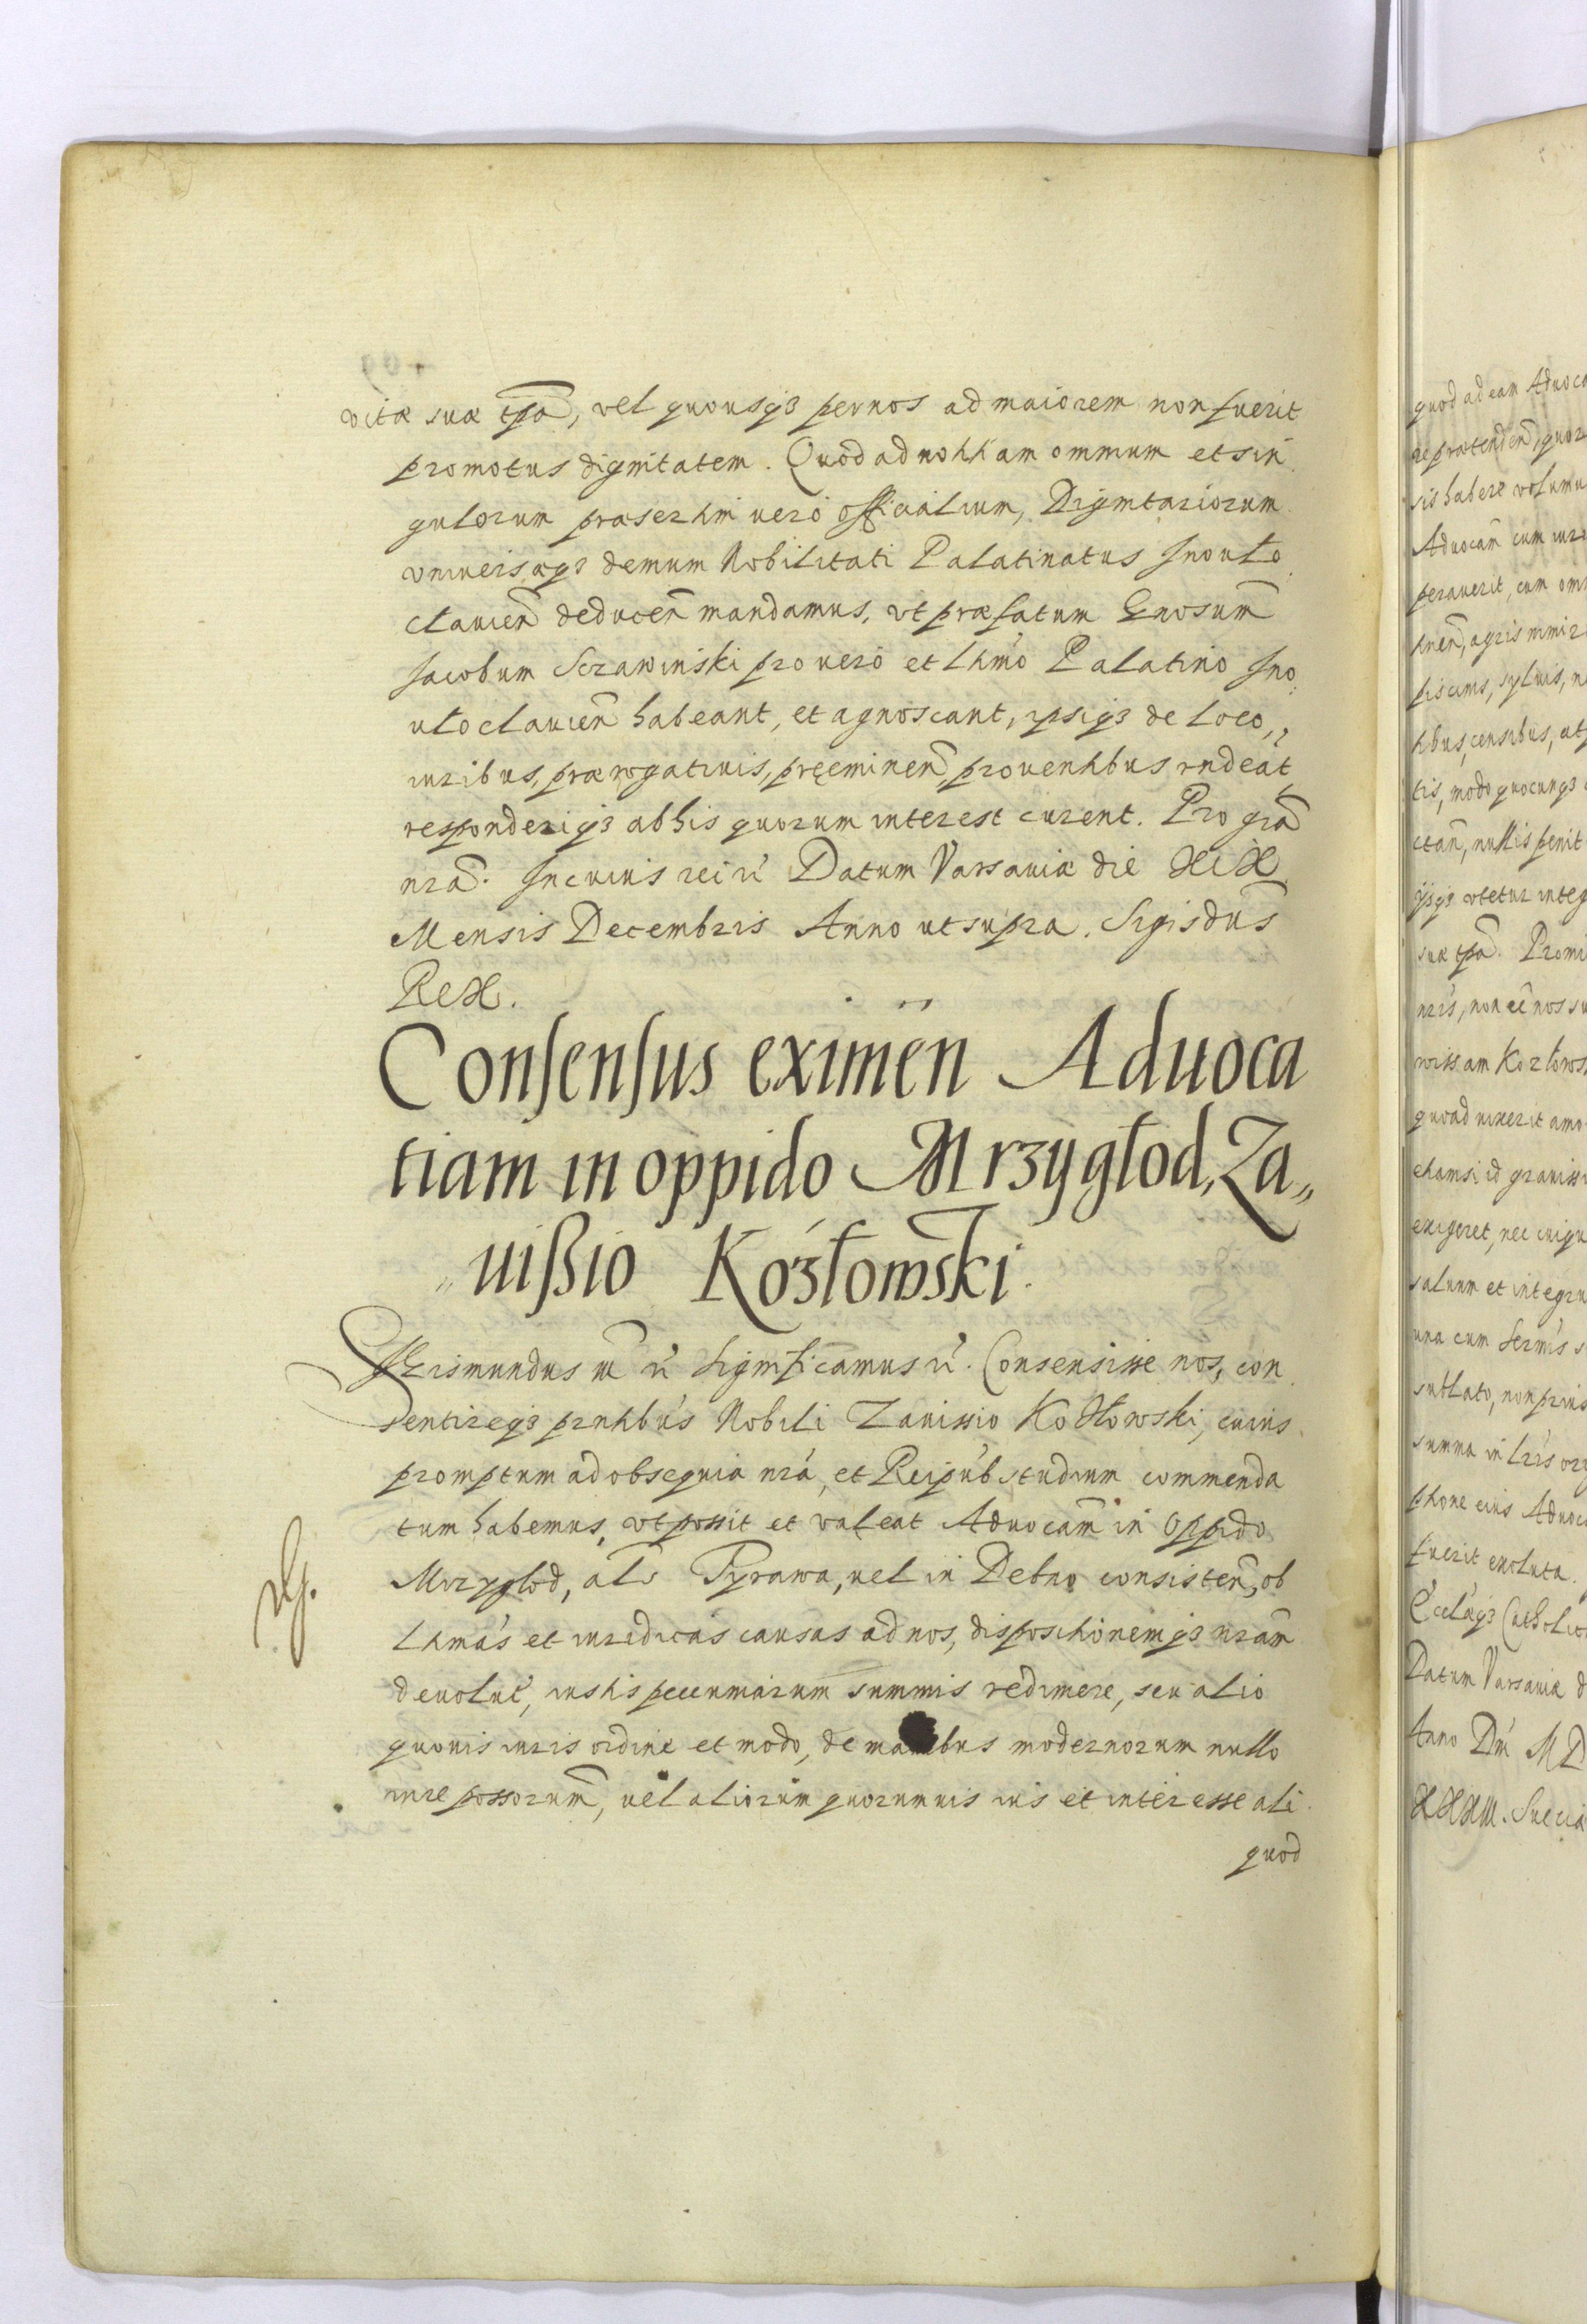 vitæ suæ tpā, vel quousqз per nos ad maiorem non fuerit
promotus dignitatem. Quod ad notitiam omnium et sin
gulorum præsertim uero officialium, Dignitariorum
vniuersæqз demum Nobilitati Palatinatus Inoulo
clauien̄ deducen̄ mandamus, vt præfatum Gnosum̄
Jacobum Szrawinski pro uero et lttimo Palatino Ino
uloclauien̄ habeant, et agnoscant, ipsiqз de loco,
iuribus, prærogatiuis, pręeminen̄, prouentibus rndeāt
responderiqз ab his quorum interest curent. Pro grā
nrā. In cuius rei rí Datum Varsauiæ die XIX
Mensis Decembris Anno ut supra. Sigisdus
Rex.
Consensus eximen̄ Aduoca
tiam in oppido Mrzygłod, Za„
„uißio Kozłowski.
Sigismundus III rí Significamus rí. Consensisse nos, con
sentireqз prntibus Nobili Zauissio Kozłowski, cuius
promptum ad obsequia nrá, et Reipub studium commenda
tum habemus, vt possit et valeat Aduocam̄ in Oppido
Mrzyglod, als Tyrawa, uel in Debno consisten̄, ob
lttmás et iuridicas causas ad nos, dispositionemqз nram̄
deuolut, iustis pecuniarum summis redimere, seu alio
quouis iuris ordine et modo, de manibus modernorum nullo
iure possorum̄, uel aliorum quorumuis ius et interesse ali
quod
quod ad eam Aduoca
re prætenden̄, quor
sis habere volumu
Aduocam̄ cum iuro
perauerit, cum omn
tinen̄, agris
piscinis, syluis,
tibus, censibus,
tis, modo quocunqз
ctan̄, nullis penit
ijsqз vtetur integ
suæ tpā. Promi
nris, non eē nos
wissam Kozlows
quoad uixerit amo
etiamsi id grauiss
exigeret, nec cuiqu
saluum et integru
una cum Sermis s
sublato, non prius
summa in lris ori
ptione eius Aduoc
fuerit exoluta.
Ecclæqз Catholic
Datum Varsauiæ d
Anno Dni MD
XXXIII. Sueciæ